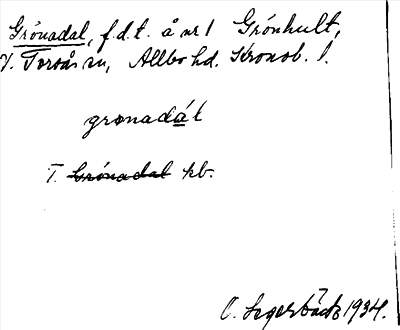 Grönadal, f.d.t. å nr 1 Grönhult,
V. Torsås sn, Allbo hd. Kronob. l.
grønadát
T. Grönadal kb.
O. Segerbäck 1934.